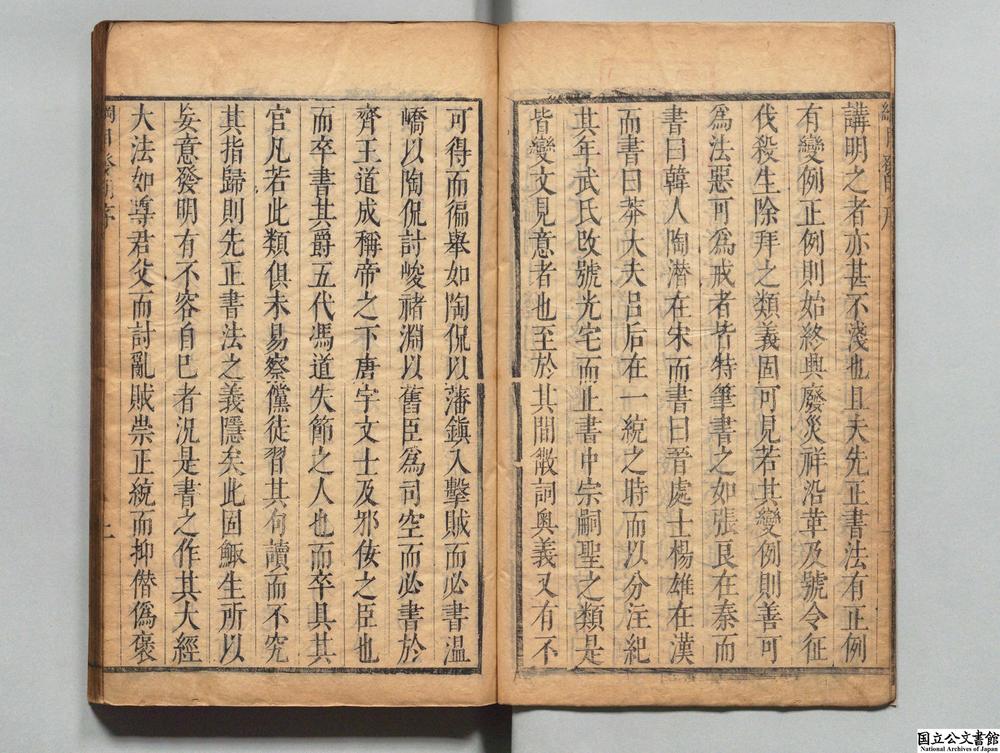 講明之者亦甚不淺也且夫先正書法有正例
有變例正例則始終興廢災祥沿革及號令征
伐殺生除拜之類義固可見若其變例則善可
為法惡可為戒者皆特筆書之如張良在秦而
書曰韓人陶潜在宋而書曰晉處士楊雄在漢
而書曰莽大夫呂后在一統之時而以分注紀
其年武氏改號光宅而止書中宗嗣聖之類是
皆變文見意者也至於其間微詞奥義又有不
可得而徧舉如陶侃以藩鎮入擊賊而必書温
嶠以陶侃討峻禇淵以舊臣為司空而必書於
齊王道成稱帝之下唐宇文士及邪佞之臣也
而卒書其爵五代馮道失節之人也而卒具其
官凡若此類俱未易察儻徒習其句讀而不究
其指歸則先正書法之義隱矣此固鯫生所以
妄意發明有不容自已者況是書之作其大經
大法如尊君父而討亂賊崇正統而抑僭偽褒
綱目發明序
上
国立公文書館
National Archives of Japan